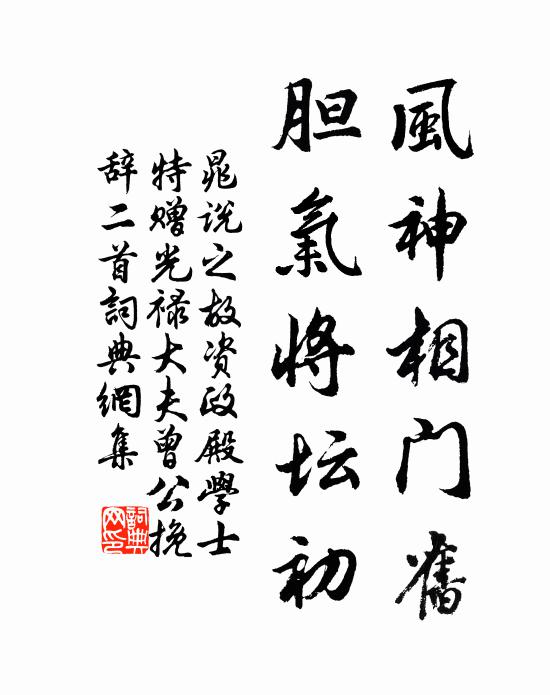 風神相门舊
胆氣将坛初
晁说之故资政殿學士
特赠光禄大夫曾公挽
辞二首詞典網集
詞典網印